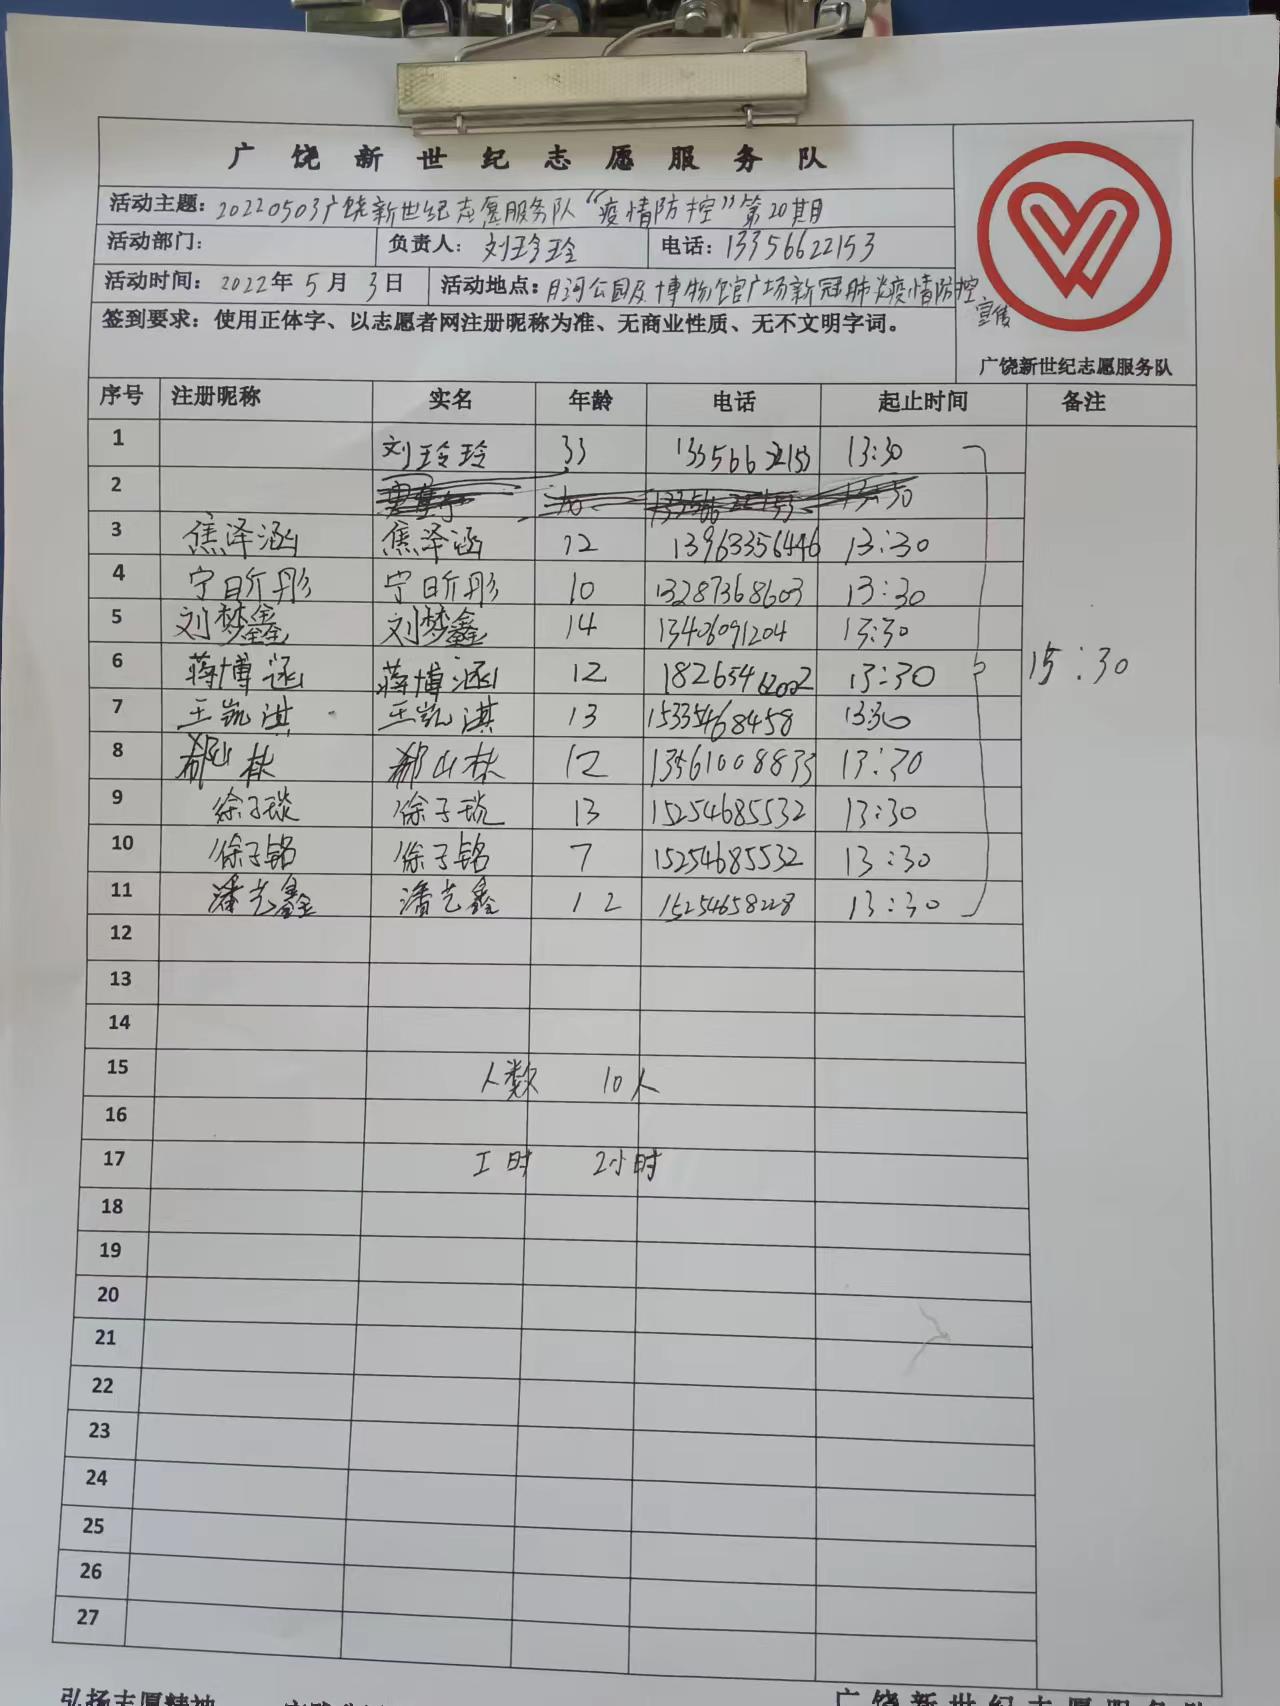 广饶新世纪志愿服务队
活动主题：20220503广饶新世纪志愿服务队“疫情防控”第20期
活动部门： 负责人：刘玲玲 电话：13356622153
活动时间：2022年5月3日 活动地点：月河公园及博物馆广场新冠肺炎疫情防控宣传
签到要求：使用正体字、以志愿者网注册昵称为准、无商业性质、无不文明字词。
广饶新世纪志愿服务队
序号 注册昵称 实名 年龄 电话 起止时间 备注
1 刘玲玲 33 13356622153 13:30
2 13:30
3 焦泽涵 焦泽涵 12 13963356446 13:30
4 宁昕彤 宁昕彤 10 13287368603 13:30
5 刘梦鑫 刘梦鑫 14 13406091204 13:30
6 蒋博涵 蒋博涵 12 18265462002 13:30
15:30
7 王凯淇 王凯淇 13 15335468458 13:30
8 郝山林 郝山林 12 13561008833 13:30
9 徐子琰 徐子琰 13 15254685532 13:30
10 徐子铭 徐子铭 7 15254685532 13:30
11 潘艺鑫 潘艺鑫 12 15254658228 13:30
12
13
14
15 人数 10人
16
17 工时 2小时
18
19
20
21
22
23
24
25
26
27
弘扬志愿精神
广饶新世纪志愿服务队